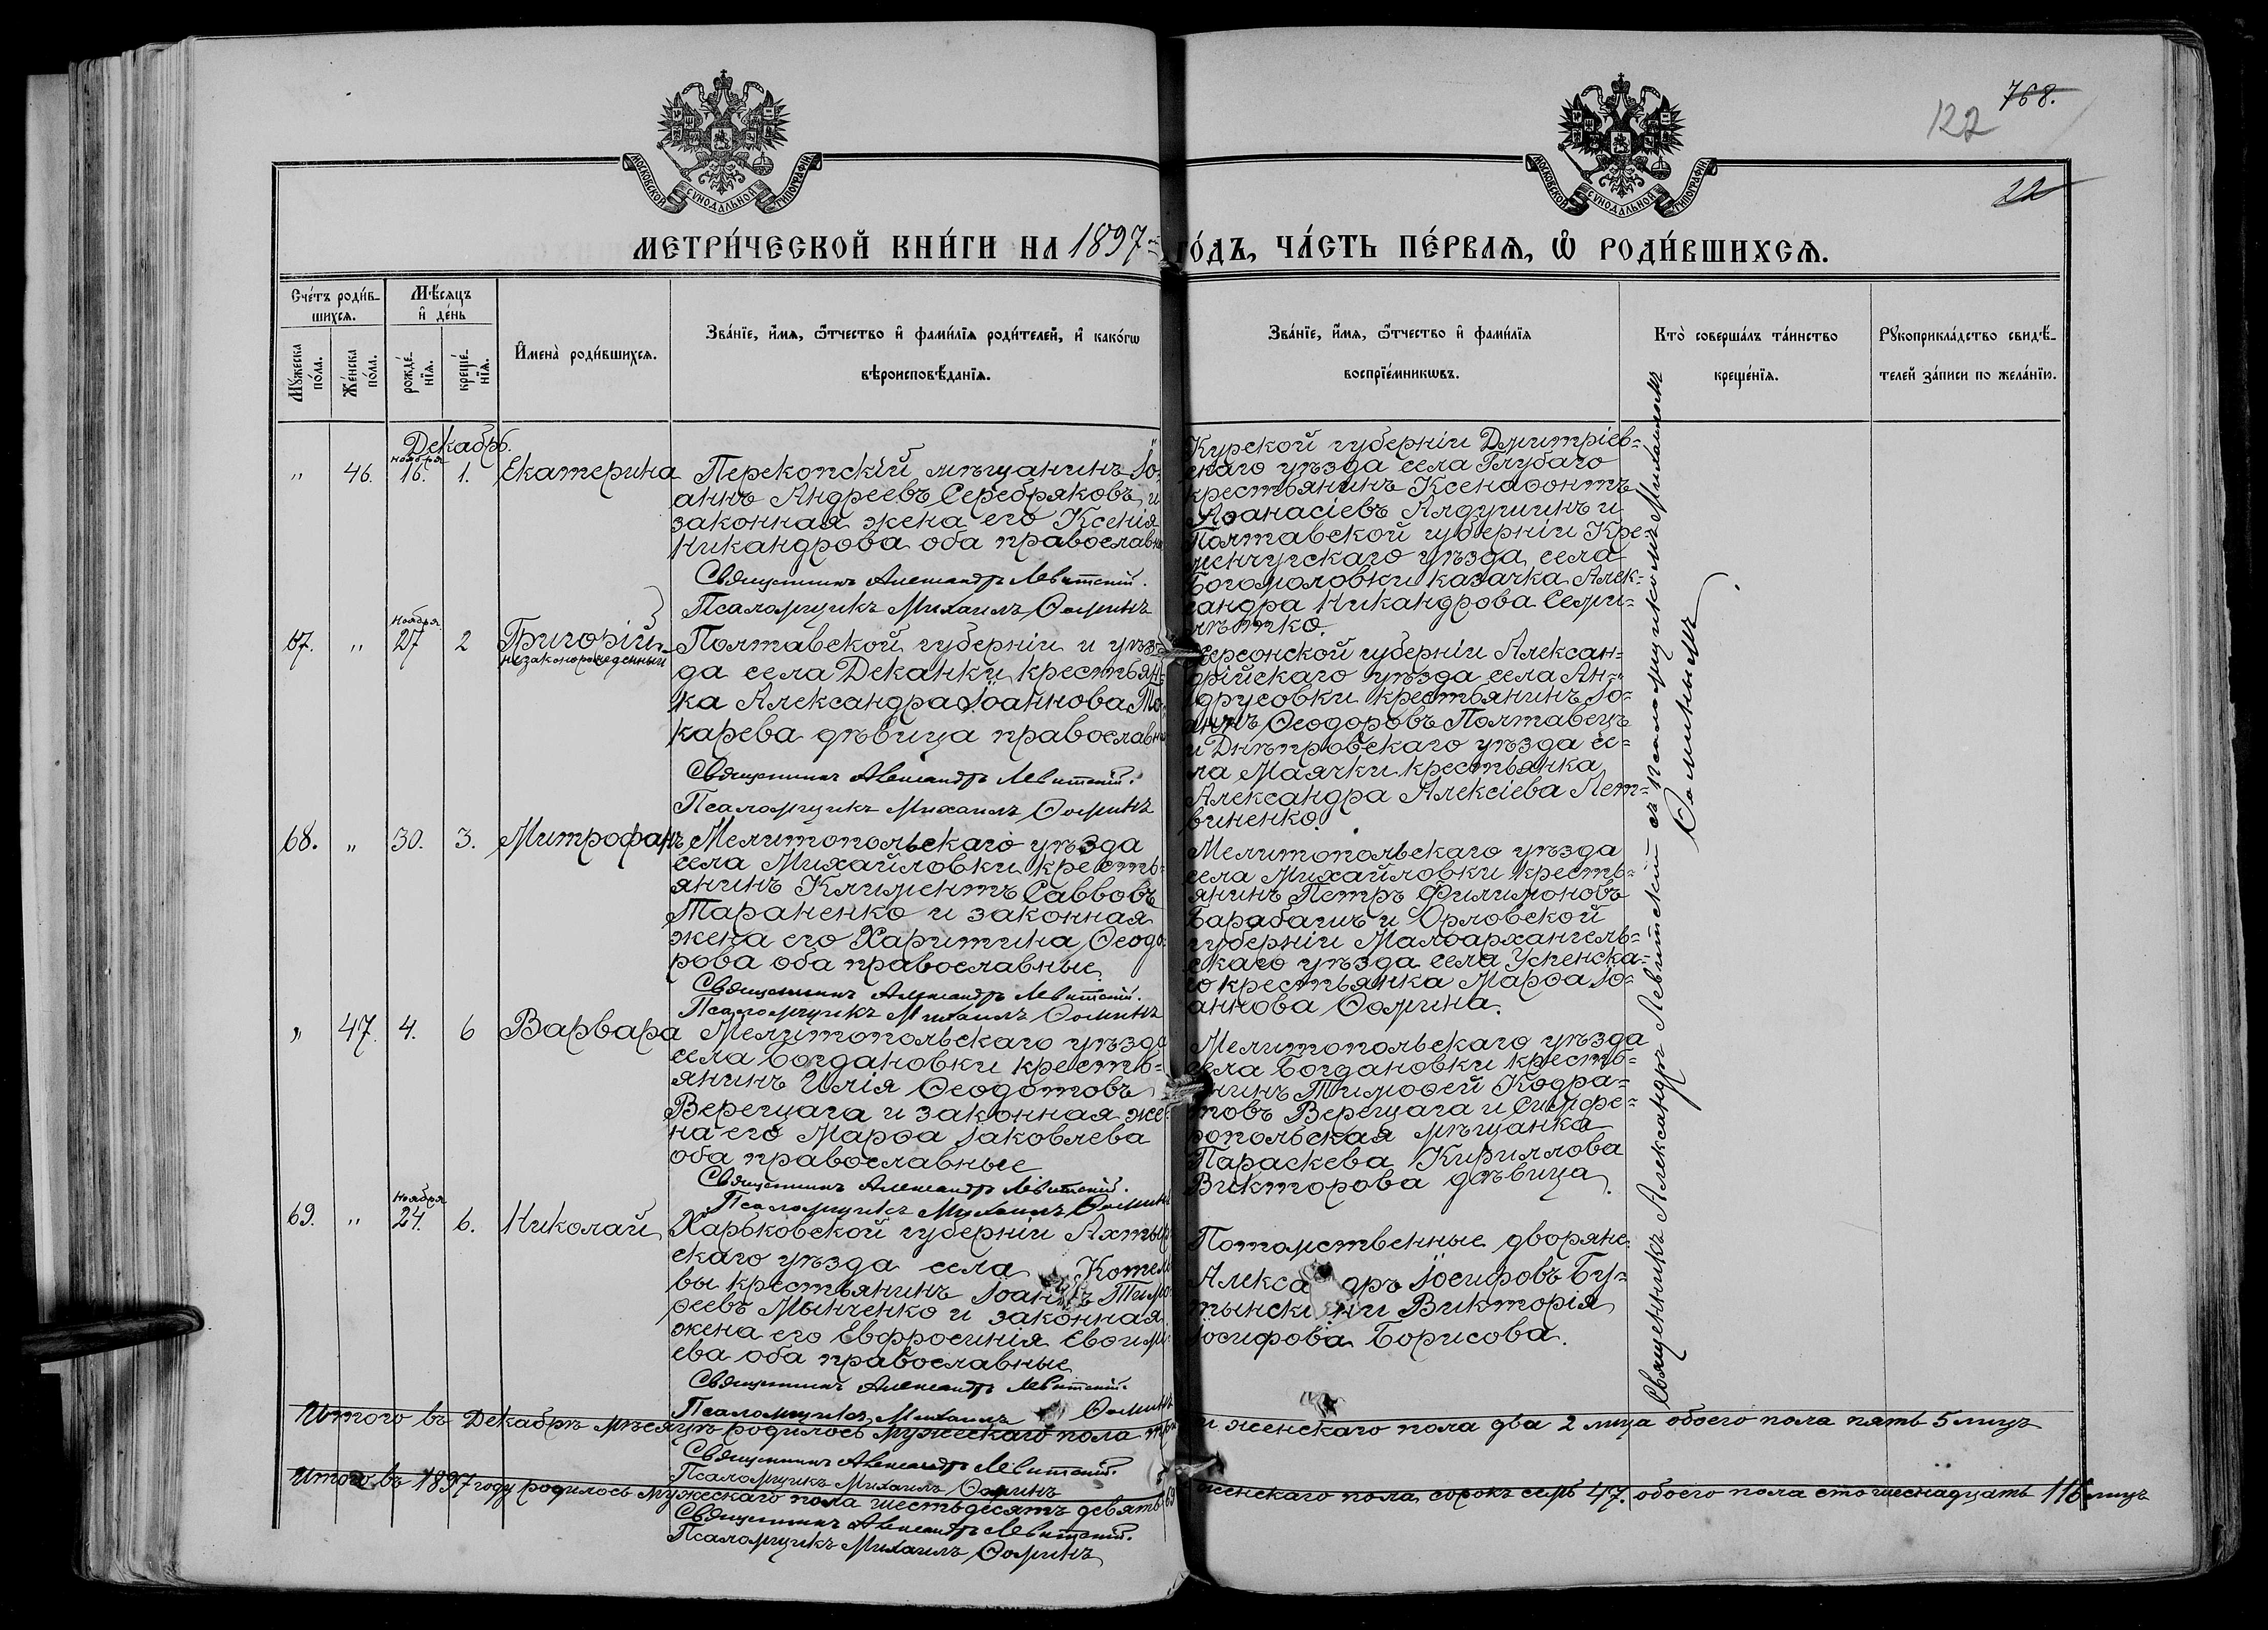 768.
122
22
МОСКОВСКОЙ СѴНОДАЛЬНОЙ ТИПОГРАФІИ
МОСКОВСКОЙ СѴНОДАЛЬНОЙ ТИПОГРАФІИ
МЕТРИ́ЧЕСКОЙ КНИ́ГИ НА 1897 ГО́ДЪ, ЧА́СТЬ ПЕ́РВАЯ, Ѡ РОДИ́ВШИХСЯ.
Сче́тъ роди́в-
шихся.
Мѣ́сяцъ
и҆ де́нь
Мꙋ́жеска
по́ла.
Же́нска
по́ла.
рожде́-
нїя.
креще́-
нїя.
И҆мена̀ роди́вшихся.
Зва́нїе, и҆́мя, ѻ҆́тчество и҆ фами́лїя роди́телей, и҆ како́гѡ
вѣроисповѣ́данїя.
Зва́нїе, и҆́мя, ѻ҆́тчество и҆ фами́лїя
воспрїе́мникѡвъ.
Кто̀ соверша́лъ та́инство
креще́нїя.
Рꙋкоприкла́дство свидѣ́-
телей за́писи по жела́нїю.
Декабрь.
ноября
" 46. 16. 1. Екатерина
Перекопскій мѣщанинъ Іо-
аннъ Андреевъ Серебряковъ и
законная жена его Ксенія
Никандрова оба православн
Священникъ Александръ Левитскій.
Псаломщикъ Михаилъ Ѳоминъ
Курской губерніи Дмитріев-
скаго уѣзда села Глубаго
крестьянинъ Ксенофонтъ
Аѳанасіевъ Алдушинъ и
Полтавской губерніи Кре-
менчугскаго уѣзда села
Богомоловки казачка Алек-
сандра Никандрова Семи-
лѣтко.
Ноября
67. " 27 2 Григорій
незаконорожденный
Полтавской губерніи и уѣз-
да села Деканки крестьян-
ка Александра Іоаннова То-
карева дѣвица православн
Священникъ Александръ Левитскій.
Псаломщикъ Михаилъ Ѳоминъ
Херсонской губерніи Алексан-
дрійскаго уѣзда села Ан-
друсовки крестьянинъ Іо-
аннъ Ѳеодоровъ Полтавецъ
и Днѣпровскаго уѣзда се-
ла Маячки крестьянка
Александра Алексіева Лет-
виненко.
68. " 30. 3. Митрофанъ
Мелитопольскаго уѣзда
села Михайловки кресть-
янинъ Климентъ Савовъ
Тараненко и законная
жена его Харитина Ѳеодо-
рова оба православные
Священникъ Александръ Левитскій.
Псаломщикъ Михаилъ Ѳоминъ
Мелитопольскаго уѣзда
села Михайловки кресть-
янинъ Петръ Филимоновъ
Барабашъ и Орловской
губерніи Малоархангель-
скаго уѣзда села Успенска-
го крестьянка Марѳа Іо-
аннова Ѳомина.
" 47. 4. 6 Варвара
Мелитопольскаго уѣзда
села Богдановки кресть-
янинъ Илія Ѳеодотовъ
Верещага и законная же-
на его Марѳа Іаковлева
оба православные
Священникъ Александръ Левитскій.
Псаломщикъ Михаилъ Ѳоминъ
Мелитопольскаго уѣзда
села Богдановки кресть-
янинъ Тимоѳей Кодра-
товъ Верещага и Симфе-
ропольская мѣщанка
Параскева Кириллова
Викторова дѣвица.
Ноября
69. " 24. 6. Николай
Харьковской губерніи Ахтыр
скаго уѣзда села Котель
вы крестьянинъ Іоаннъ Тимо
ѳеевъ Мынченко и законная
жена его Евфросинія Евѳим
ева оба православные
Священникъ Александръ Левитскій.
Псаломщикъ Михаилъ Ѳоминъ
Потомственные дворяне:
Александръ Іосифовъ Бу-
тынскій и Викторія
Іосифова Борисова.
Священникъ Александръ Левитскій съ псаломщикомъ Михаиломъ
Ѳоминымъ.
Итого въ Декабрѣ мѣсяцѣ родилось мужескаго пола три и женскаго пола два 2 лица обоего пола пять 5 лицъ
Священникъ Александръ Левитскій.
Псаломщикъ Михаилъ Ѳоминъ
Итого въ 1897 году родилось мужескаго пола шестьдесятъ девять 69 женскаго пола сорокъ семь 47. обоего пола сто шеснадцать 116 лицъ
Священникъ Александръ Левитскій.
Псаломщикъ Михаилъ Ѳоминъ